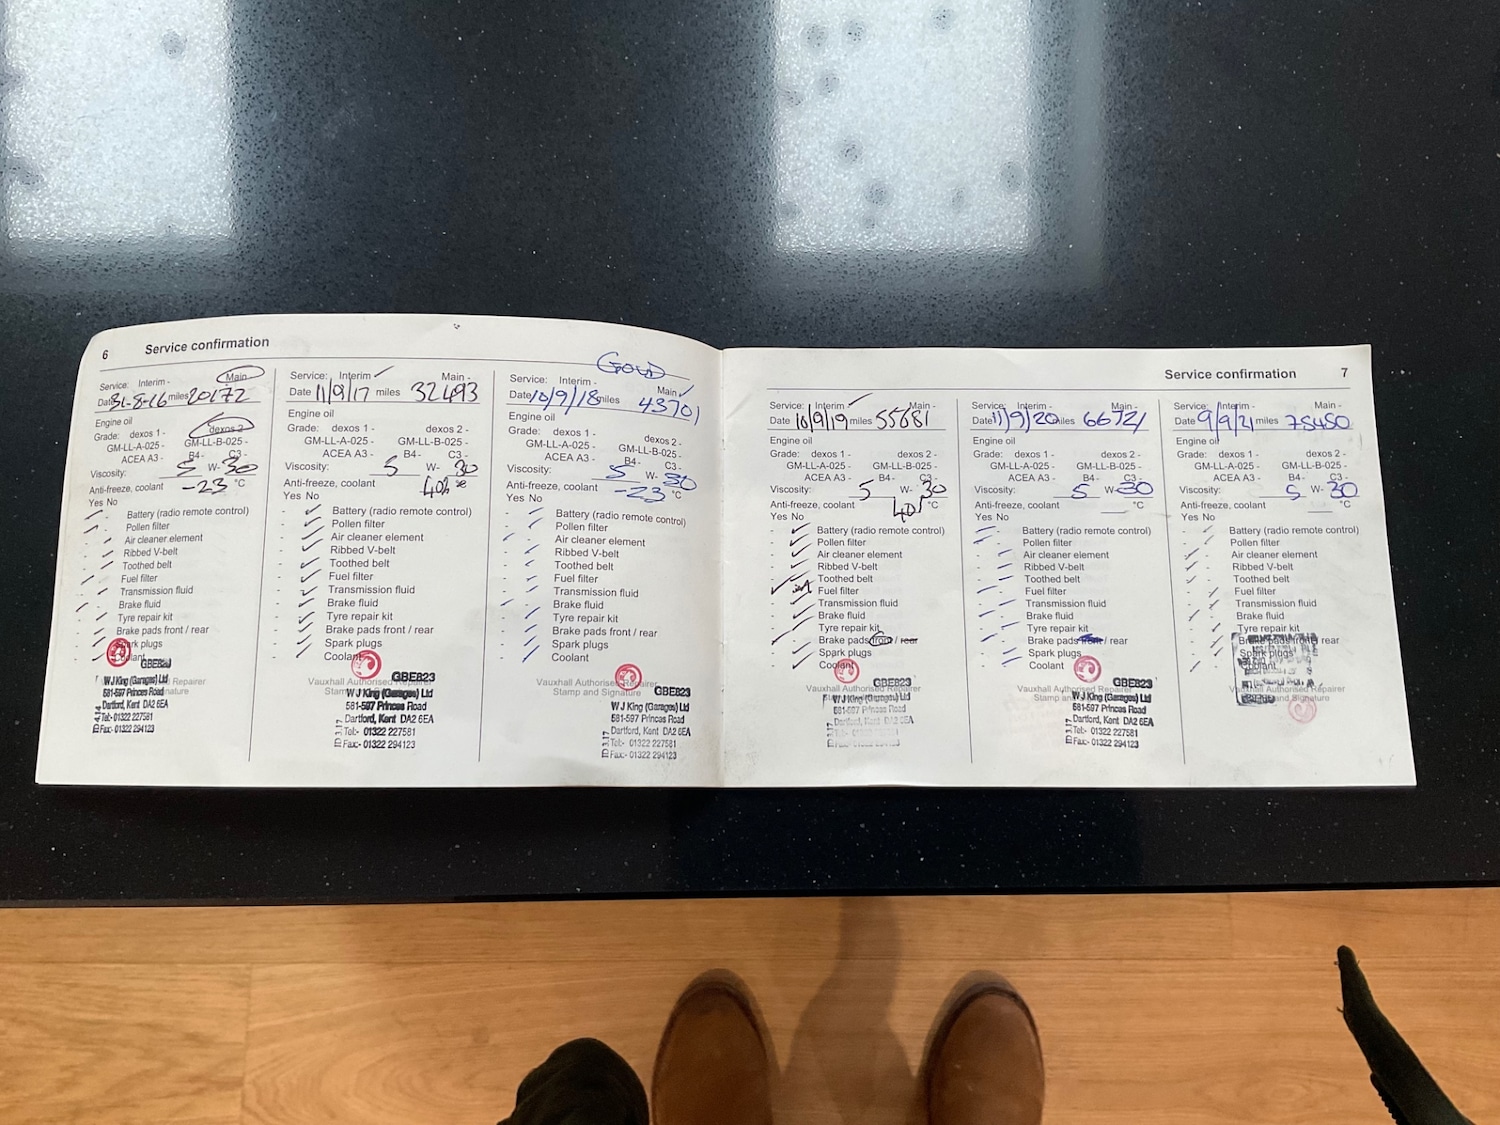 6 Service confirmation
Service: Interim - Main
Date 31-8-16 miles 20172
Engine oil
Grade: dexos 1 - dexos 2 -
GM-LL-A-025 - GM-LL-B-025 -
ACEA A3 - B4- C3 -
Viscosity: 5 W- 30
Anti-freeze, coolant -23 °C
Yes No
Battery (radio remote control)
Pollen filter
Air cleaner element
Ribbed V-belt
Toothed belt
Fuel filter
Transmission fluid
Brake fluid
Tyre repair kit
Brake pads front / rear
Spark plugs
Coolant
W J King (Garages) Ltd
581-597 Princes Road
Dartford, Kent DA2 6EA
Tel:- 01322 227581
Fax:- 01322 294123
Service: Interim Main -
Date 11/9/17 miles 32493
Engine oil
Grade: dexos 1 - dexos 2 -
GM-LL-A-025 - GM-LL-B-025 -
ACEA A3 - B4- C3 -
Viscosity: 5 W- 30
Anti-freeze, coolant
Yes No
Battery (radio remote control)
Pollen filter
Air cleaner element
Ribbed V-belt
Toothed belt
Fuel filter
Transmission fluid
Brake fluid
Tyre repair kit
Brake pads front / rear
Spark plugs
Coolant
GBE823
Vauxhall Authorised Repairer
W J King (Garages) Ltd
581-597 Princes Road
Dartford, Kent DA2 6EA
Tel:- 01322 227581
Fax:- 01322 294123
Service: Interim - Main
Date 10/9/18 miles 43701
Engine oil
Grade: dexos 1 - dexos 2 -
GM-LL-A-025 - GM-LL-B-025 -
ACEA A3 - B4- C3 -
Viscosity: 5 W- 30
Anti-freeze, coolant -23 °C
Yes No
Battery (radio remote control)
Pollen filter
Air cleaner element
Ribbed V-belt
Toothed belt
Fuel filter
Transmission fluid
Brake fluid
Tyre repair kit
Brake pads front / rear
Spark plugs
Coolant
Vauxhall Authorised Repairer
Stamp and Signature
GBE823
W J King (Garages) Ltd
581-597 Princes Road
Dartford, Kent DA2 6EA
Tel:- 01322 227581
Fax:- 01322 294123
Service confirmation 7
Service: Interim Main -
Date 10/9/19 miles 55681
Engine oil
Grade: dexos 1 - dexos 2 -
GM-LL-A-025 - GM-LL-B-025 -
ACEA A3 - B4- C3 -
Viscosity: 5 W- 30
Anti-freeze, coolant °C
Yes No
Battery (radio remote control)
Pollen filter
Air cleaner element
Ribbed V-belt
Toothed belt
Fuel filter
Transmission fluid
Brake fluid
Tyre repair kit
Brake pads front / rear
Spark plugs
Coolant
GBE823
Vauxhall Authorised Repairer
W J King (Garages) Ltd
581-597 Princes Road
Dartford, Kent DA2 6EA
Fax:- 01322 294123
Service: Interim - Main -
Date 11/9/20 miles 66721
Engine oil
Grade: dexos 1 - dexos 2 -
GM-LL-A-025 - GM-LL-B-025 -
ACEA A3 - B4- C3 -
Viscosity: 5 W- 30
Anti-freeze, coolant °C
Yes No
Battery (radio remote control)
Pollen filter
Air cleaner element
Ribbed V-belt
Toothed belt
Fuel filter
Transmission fluid
Brake fluid
Tyre repair kit
Brake pads front / rear
Spark plugs
Coolant
Vauxhall Authorised Repairer
GBE823
W J King (Garages) Ltd
581-597 Princes Road
Dartford, Kent DA2 6EA
Tel:- 01322 227581
Fax:- 01322 294123
Service: Interim - Main -
Date 9/9/21 miles 75450
Engine oil
Grade: dexos 1 - dexos 2 -
GM-LL-A-025 - GM-LL-B-025 -
ACEA A3 - B4- C3 -
Viscosity: 5 W- 30
Anti-freeze, coolant °C
Yes No
Battery (radio remote control)
Pollen filter
Air cleaner element
Ribbed V-belt
Toothed belt
Fuel filter
Transmission fluid
Brake fluid
Tyre repair kit
Brake pads front / rear
Spark plugs
Coolant
Vauxhall Authorised Repairer